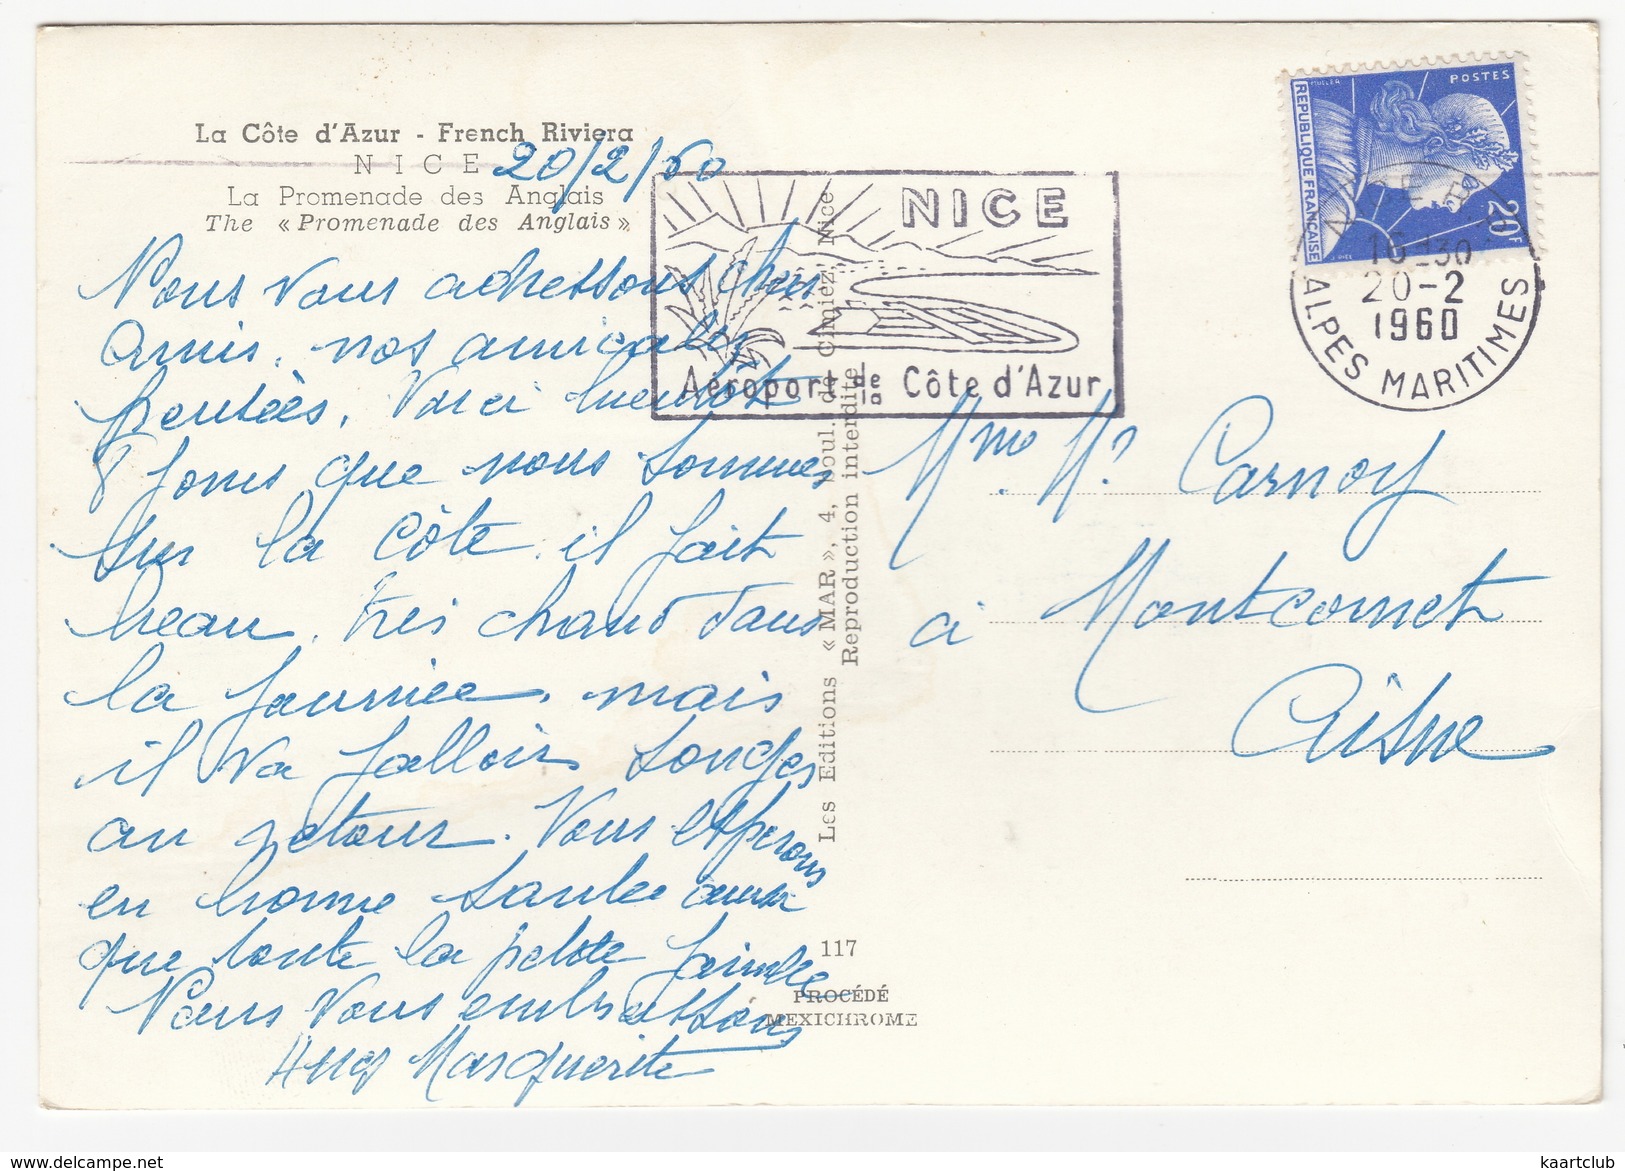 La Côte d'Azur - French Riviera
NICE
La Promenade des Anglais
The « Promenade des Anglais »
20/2/60
Nous vous adressons chers
Amis, nos amicales
pensées, Voici bientôt
8 jours que nous sommes
sur la Côte il fait
beau, très chaud dans
la journée, mais
il va falloir songer
au retour. Vous espérons
en bonne santée ainsi
que toute la petite famille
Nous Vous embrassons
Marguerite
NICE
Aéroport de la Côte d'Azur
POSTES
MULLER
REPUBLIQUE FRANÇAISE
20F
16-30
20-2
1960
ALPES MARITIMES
Les Editions « MAR », 4, boul. de Cimiez, Nice
Reproduction interdite
117
PROCÉDÉ
MEXICHROME
Mme Mr Carnoy
à Montcornet
Aisne
delcampe.net
kaartclub